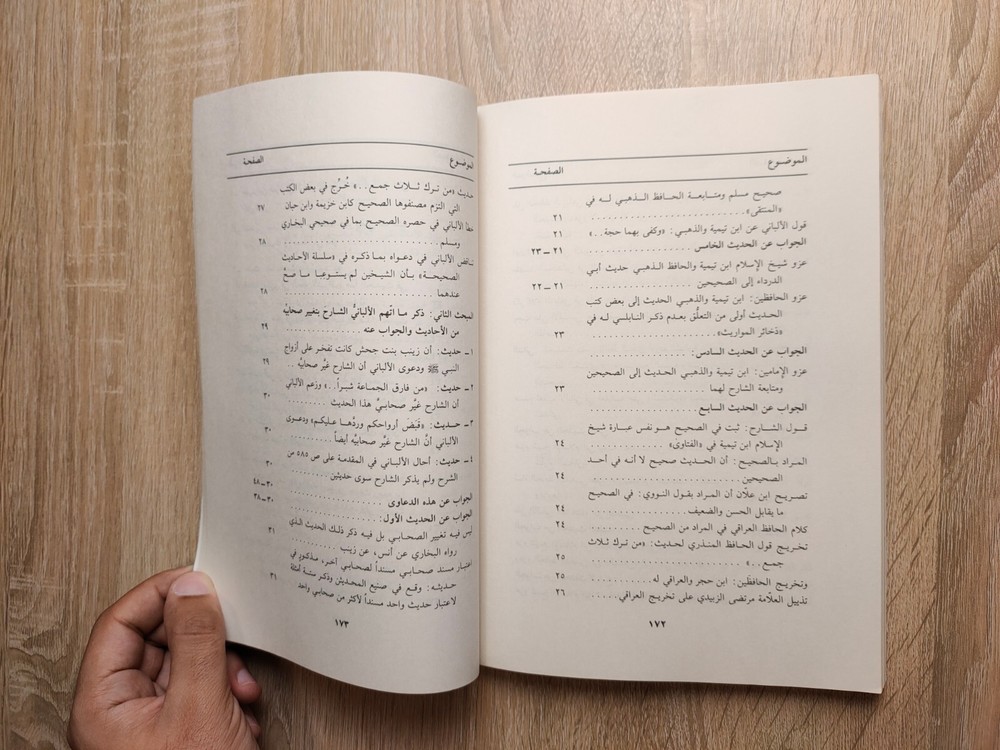 الموضوع الصفحة
صحيح مسلم ومتابعة الحافظ الذهبي له في
«المنتقى» . . . ٢١
قول الألباني عن ابن تيمية والذهبي: «وكفى بهما حجة..» ٢١
الجواب عن الحديث الخامس ٢١ – ٢٣
عزو شيخ الإسلام ابن تيمية والحافظ الذهبي حديث أبي
الدرداء إلى الصحيحين ٢١ – ٢٢
عزو الحافظين: ابن تيمية والذهبي الحديث إلى بعض كتب
الحديث أولى من التعلّق بعدم ذكر النابلسي له في
«ذخائر المواريث» ٢٣
الجواب عن الحديث السادس:
عزو الإمامين: ابن تيمية والذهبي الحديث إلى الصحيحين
ومتابعة الشارح لهما ٢٣
الجواب عن الحديث السابع
قول الشارح: ثبت في الصحيح هو نفس عبارة شيخ
الإسلام ابن تيمية في «الفتاوى» ٢٤
المراد بالصحيح: أن الحديث صحيح لا أنه في أحد
الصحيحين ٢٤
تصريح ابن علّان أن المراد بقول النووي: في الصحيح
ما يقابل الحسن والضعيف ٢٤
كلام الحافظ العراقي في المراد من الصحيح ٢٤
تخريج قول الحافظ المنذري لحديث: «من ترك ثلاث
جمع..» ٢٥
وتخريج الحافظين: ابن حجر والعراقي له ٢٥
تذييل العلّامة مرتضى الزبيدي على تخريج العراقي ٢٦
١٧٢
الموضوع الصفحة
حديث «من ترك ثلاث جمع..» خُرِّج في بعض الكتب
التي التزم مصنفوها الصحيح كابن خزيمة وابن حبان ٢٧
خطأ الألباني في حصره الصحيح بما في صحيحي البخاري
ومسلم ٢٨
تناقض الألباني في دعواه بما ذكره في «سلسلة الأحاديث
الصحيحة» بأن الشيخين لم يستوعبا ما صحَّ
عندهما ٢٨
المبحث الثاني: ذكر ما اتّهم الألبانيُّ الشارحَ بتغيير صحابيِّه
من الأحاديث والجواب عنه ٢٩
١ – حديث: أن زينب بنت جحش كانت تفخر على أزواج
النبي ﷺ ودعوى الألباني أن الشارح غيَّر صحابيَّه .. ٢٩
٢ – حديث: «من فارق الجماعة شبراً..» وزعم الألباني
أن الشارح غيَّر صحابيَّ هذا الحديث ٣٠
٣ – حديث: «قَبَضَ أرواحكم وردَّها عليكم» ودعوى
الألباني أنَّ الشارح غيَّر صحابيَّه أيضاً ٣٠
٤ – حديث: أحال الألباني في المقدمة على ص ٥٨٥ من
الشرح ولم يذكر الشارح سوى حديثين ٣٠
الجواب عن هذه الدعاوى ٣٠ – ٤٨
الجواب عن الحديث الأول: ٣٠ – ٣٨
ليس فيه تغيير الصحابي بل فيه ذكر ذلك الحديث الذي
رواه البخاري عن أنس، عن زينب ٣١
اعتبار مسند صحابي مسنداً لصحابي آخر، مذكورٍ في
حديثه: وقع في صنيع المحدثين وذكر ستة أمثلة
لاعتبار حديث واحد مسنداً لأكثر من صحابي واحد ٣١
١٧٣